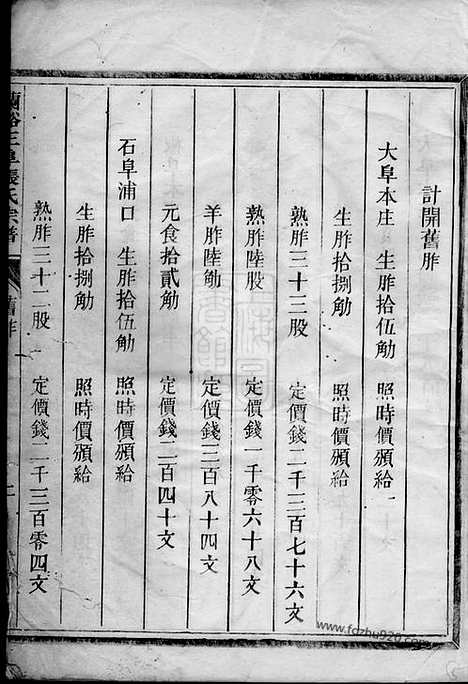 計開舊胙
大阜本庄 生胙拾伍觔 照時價頒給
生胙拾捌觔 照時價頒給
熟胙三十三股 定價錢二千三百七十六文
熟胙陸股 定價錢一千零六十八文
羊胙陸觔 定價錢三百八十四文
元食拾貳觔 定價錢二百四十文
石阜浦口 生胙拾伍觔 照時價頒給
生胙拾捌觔 照時價頒給
熟胙三十二股 定價錢二千三百零四文
三阜張氏宗譜 舊胙
上海圖書館藏
www.fozhu920.com